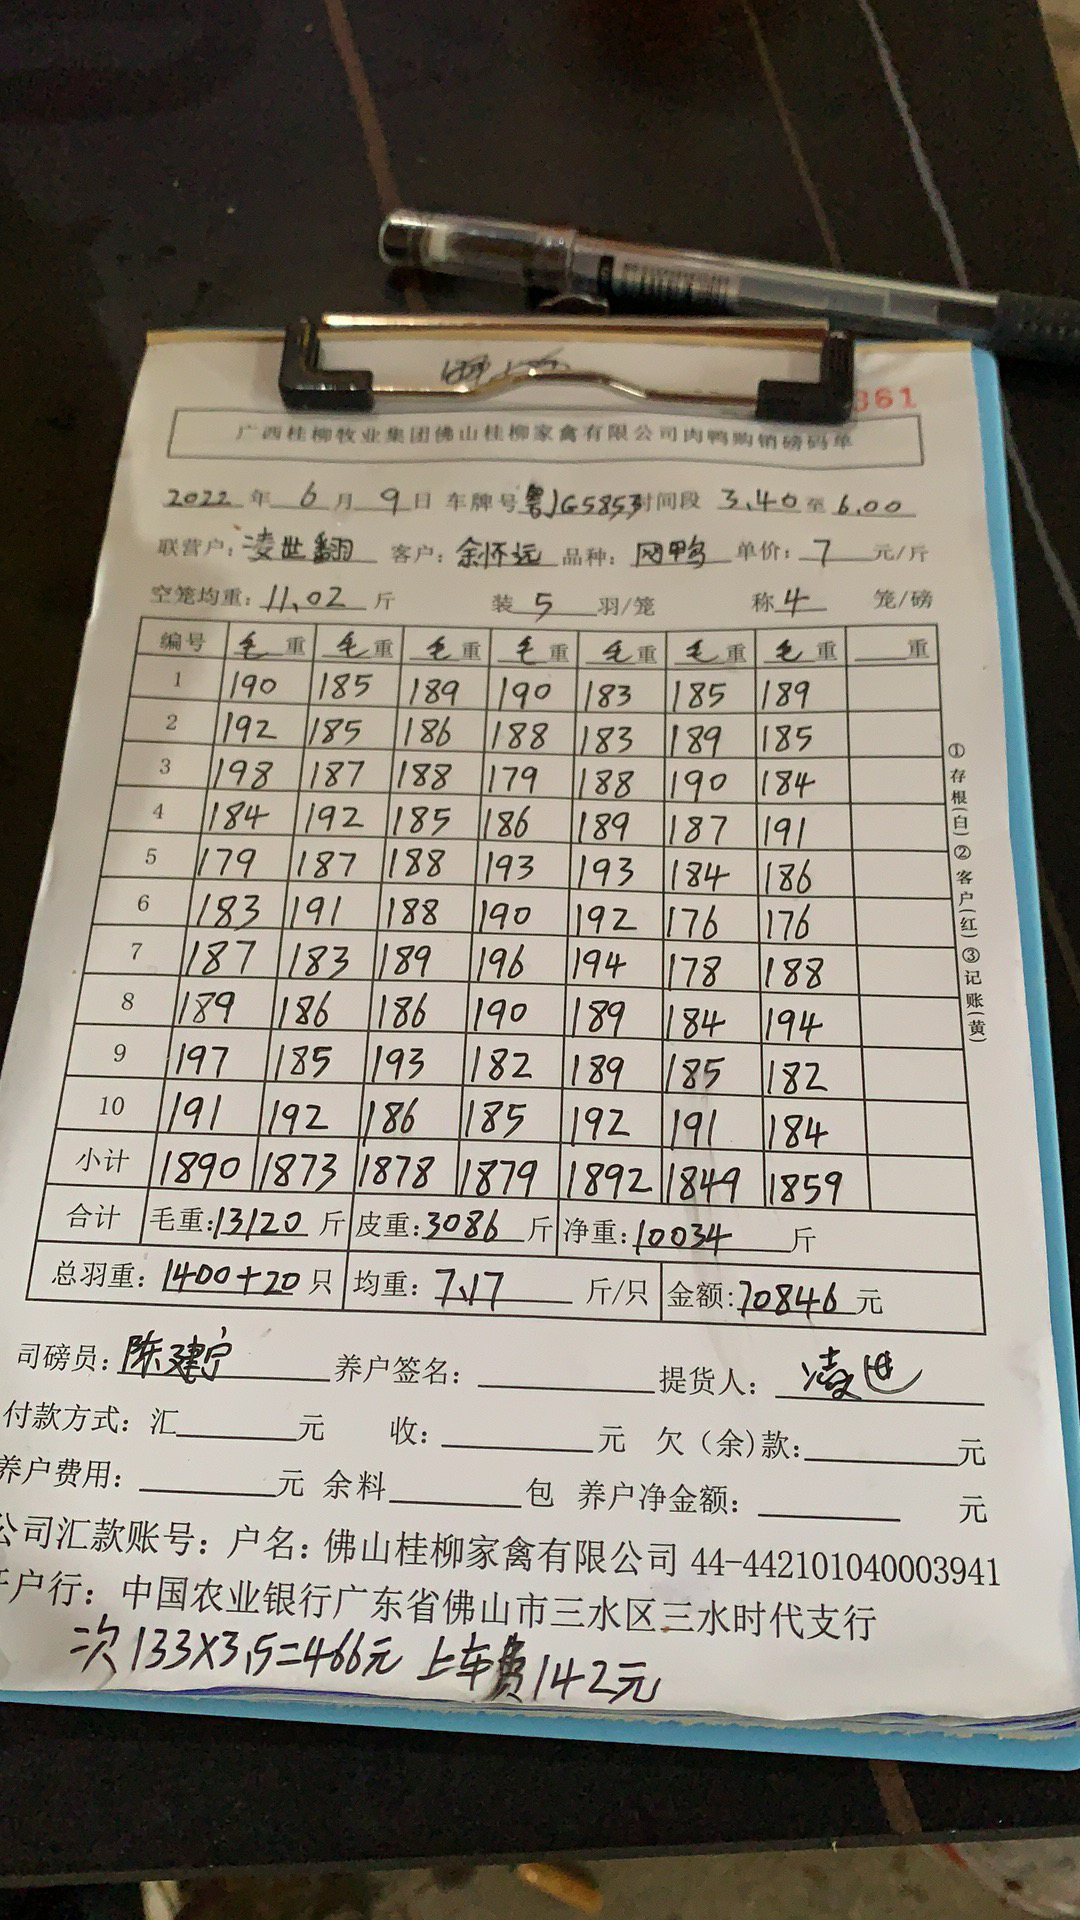 361
广西桂柳牧业集团佛山桂柳家禽有限公司肉鸭购销磅码单
2022 年 6 月 9 日 车牌号 粤JG5853 时间段 3.40 至 6.00
联营户: 凌世翻 客户: 余怀远 品种: 网鸭 单价: 7 元/斤
空笼均重: 11.02 斤 装 5 羽/笼 称 4 笼/磅
编号 毛重 毛重 毛重 毛重 毛重 毛重 毛重 重
1 190 185 189 190 183 185 189
2 192 185 186 188 183 189 185
3 198 187 188 179 188 190 184
4 184 192 185 186 189 187 191
5 179 187 188 193 193 184 186
6 183 191 188 190 192 176 176
7 187 183 189 196 194 178 188
8 189 186 186 190 189 184 194
9 197 185 193 182 189 185 182
10 191 192 186 185 192 191 184
小计 1890 1873 1878 1879 1892 1849 1859
合计 毛重:13120 斤 皮重:3086 斤 净重:10034 斤
总羽重: 1400+20 只 均重: 7.17 斤/只 金额:70846 元
①存根(白)②客户(红)③记账(黄)
司磅员: 陈建宁 养户签名: 提货人: 凌
付款方式: 汇 元 收: 元 欠（余)款: 元
养户费用: 元 余料 包 养户净金额: 元
公司汇款账号: 户名: 佛山桂柳家禽有限公司 44-442101040003941
户行: 中国农业银行广东省佛山市三水区三水时代支行
次133X3.5=466元 上车费142元